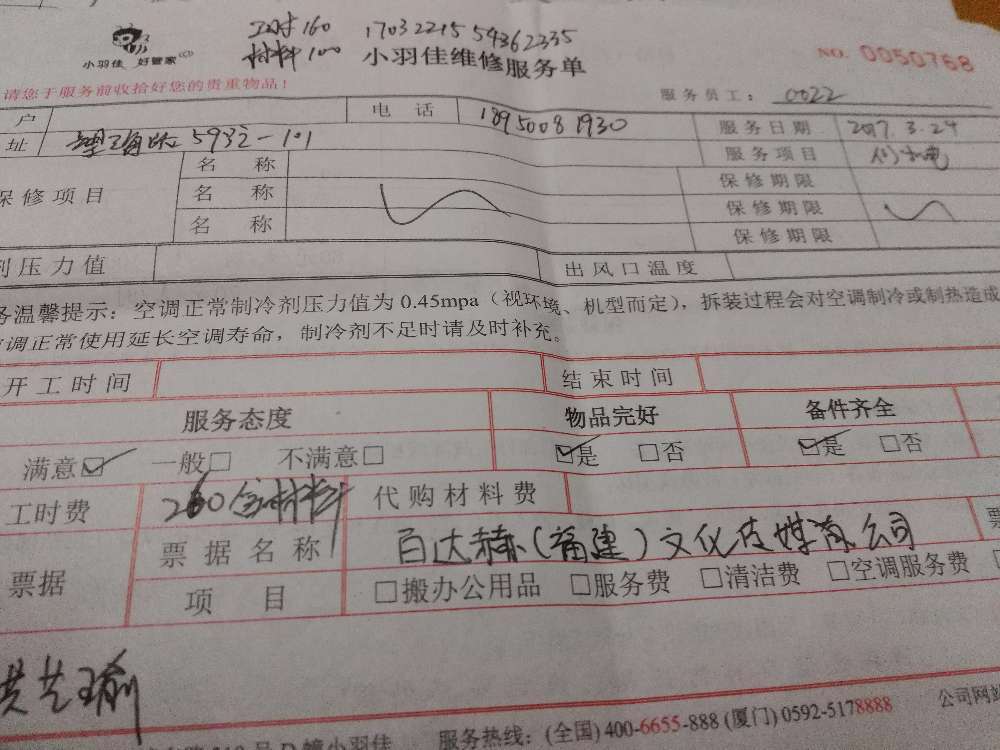 工时160 17032215 54362335
材料100 小羽佳维修服务单 NO. 0050768
小羽佳 好管家
请您于服务前收拾好您的贵重物品! 服务员工: 0022
户 电 话 18950081930 服务日期 2017.3.24
址 593之-101 服务项目
保修项目 名 称 保修期限
名 称 保修期限
名 称 保修期限
剂压力值 出风口温度
务温馨提示:空调正常制冷剂压力值为0.45mpa(视环境、机型而定),拆装过程会对空调制冷或制热造成
调正常使用延长空调寿命,制冷剂不足时请及时补充。
开工时间 结束时间
服务态度 物品完好 备件齐全
满意☑ 一般□ 不满意□ ☑是 □否 ☑是 □否
工时费 260含材料 代购材料费
票据 票据名称 百达赫(福建)文化传媒有限公司 票
项 目 □搬办公用品 □服务费 □清洁费 □空调服务费
服务热线:(全国)400-6655-888 (厦门)0592-5178888 公司网站
号D幢小羽佳